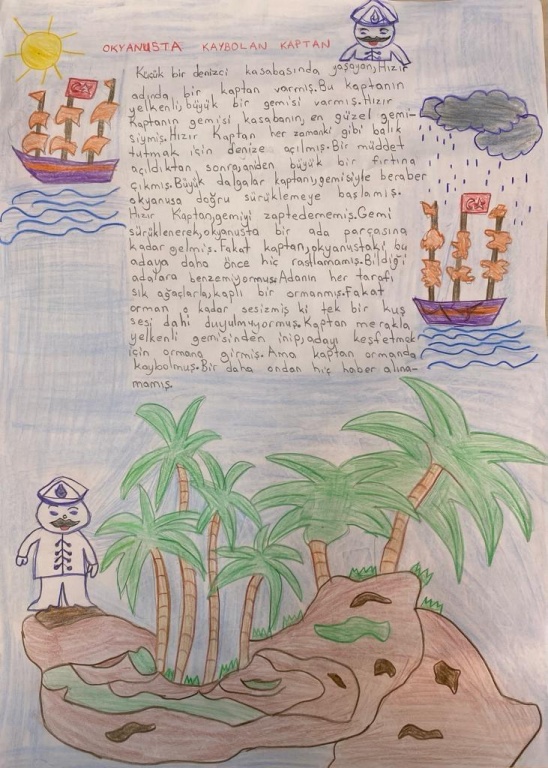 OKYANUSTA KAYBOLAN KAPTAN
Küçük bir denizci kasabasında yaşayan, Hızır
adında bir kaptan varmış. Bu kaptanın
yelkenli, büyük bir gemisi varmış. Hızır
Kaptanın gemisi kasabanın, en güzel gemi-
siymiş. Hızır Kaptan her zamanki gibi balık
tutmak için denize açılmış. Bir müddet
açıldıktan, sonra, aniden büyük bir fırtına
çıkmış. Büyük dalgalar kaptanı, gemisiyle beraber
okyanusa doğru sürüklemeye başlamış.
Hızır Kaptan, gemiyi zaptedememiş. Gemi
sürüklenerek, okyanusta bir ada parçasına
kadar gelmiş. Fakat kaptan, okyanustaki bu
adaya daha önce hiç rastlamamış. Bildiği
adalara benzemiyormuş. Adanın her tarafı
sık ağaçlarla, kaplı bir ormanmış. Fakat
orman o kadar sesizmiş ki tek bir kuş
sesi dahi duyulmuyormuş. Kaptan merakla
yelkenli gemisinden inip, adayı keşfetmek
için ormana girmiş. Ama kaptan ormanda
kaybolmuş. Bir daha ondan hiç haber alına-
mamış.